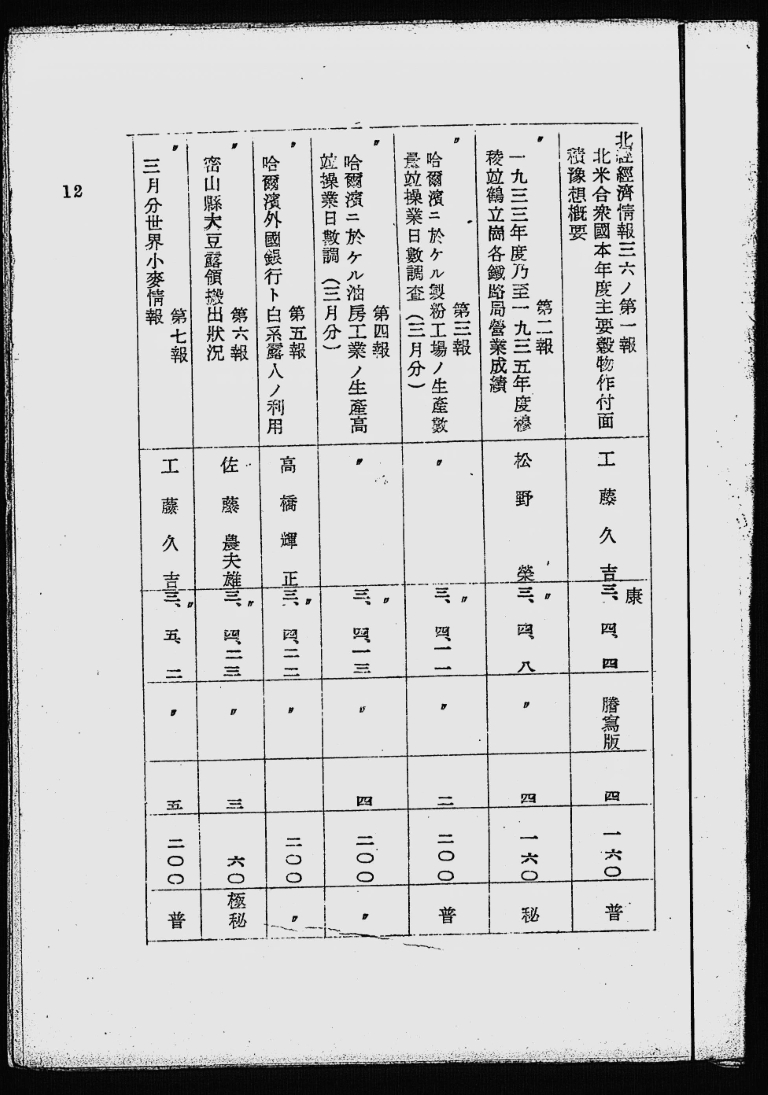 北經經濟情報三六ノ第一報
北米合衆國本年度主要穀物作付面
積豫想槪要
工藤久吉
康三、四、四
謄寫版
四
一六〇
普
〃 第二報
一九三三年度乃至一九三五年度穆
稜竝鶴立崗各鐵路局營業成績
松野榮
〃三、四、八
〃
四
一六〇
秘
〃 第三報
哈爾濱ニ於ケル製粉工場ノ生產數
量竝操業日數調査(三月分)
〃
〃三、四、一一
〃
二
二〇〇
普
〃 第四報
哈爾濱ニ於ケル油房工業ノ生產高
竝操業日數調(三月分)
〃
〃三、四、一三
〃
四
二〇〇
〃
〃 第五報
哈爾濱外國銀行ト白系露人ノ利用
高橋輝正
〃三、四、二二
〃
二〇〇
〃
〃 第六報
密山縣大豆露領搬出狀況
佐藤農夫雄
〃三、四、二三
〃
三
六〇
極秘
〃 第七報
三月分世界小麥情報
工藤久吉
〃三、五、二
〃
五
二〇〇
普
12